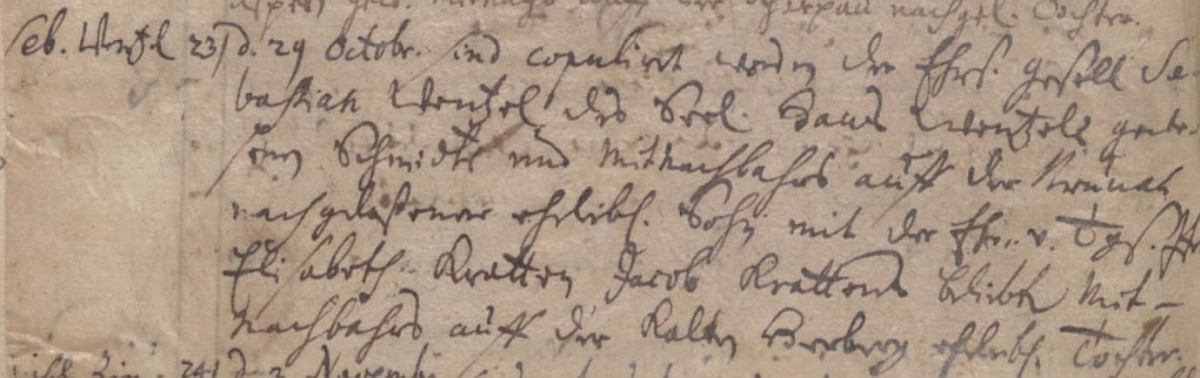 nachgel. Tochter.
Seb. Wentzel 23) d. 29 Octobr. sind copulirt worden der Ehrs. gesell Se-
bastian Wentzel des Seel. Hans Wentzels gewe-
senen Schmidts und Mitnachbahrs auff der
nachgelaßener ehleibl. Sohn mit der Ehr. v. Tgs. Jfr.
Elisabeth Kratten Jacob Krattens Mit-
nachbahrs auff der Kalten Herberg ehleibl. Tochter.
241 d. 3 Novembr